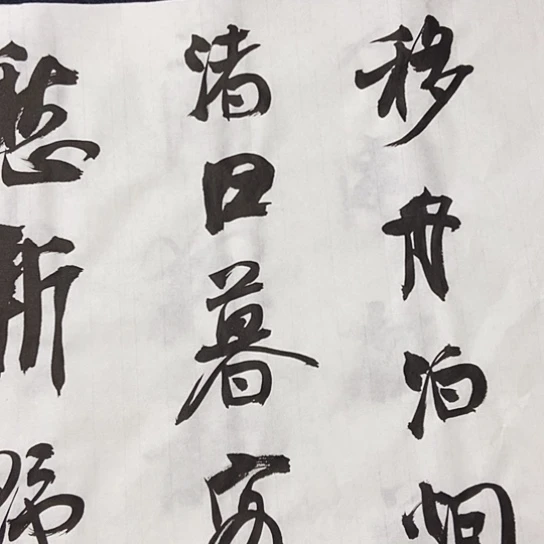 移舟泊烟
渚日暮客
愁新野